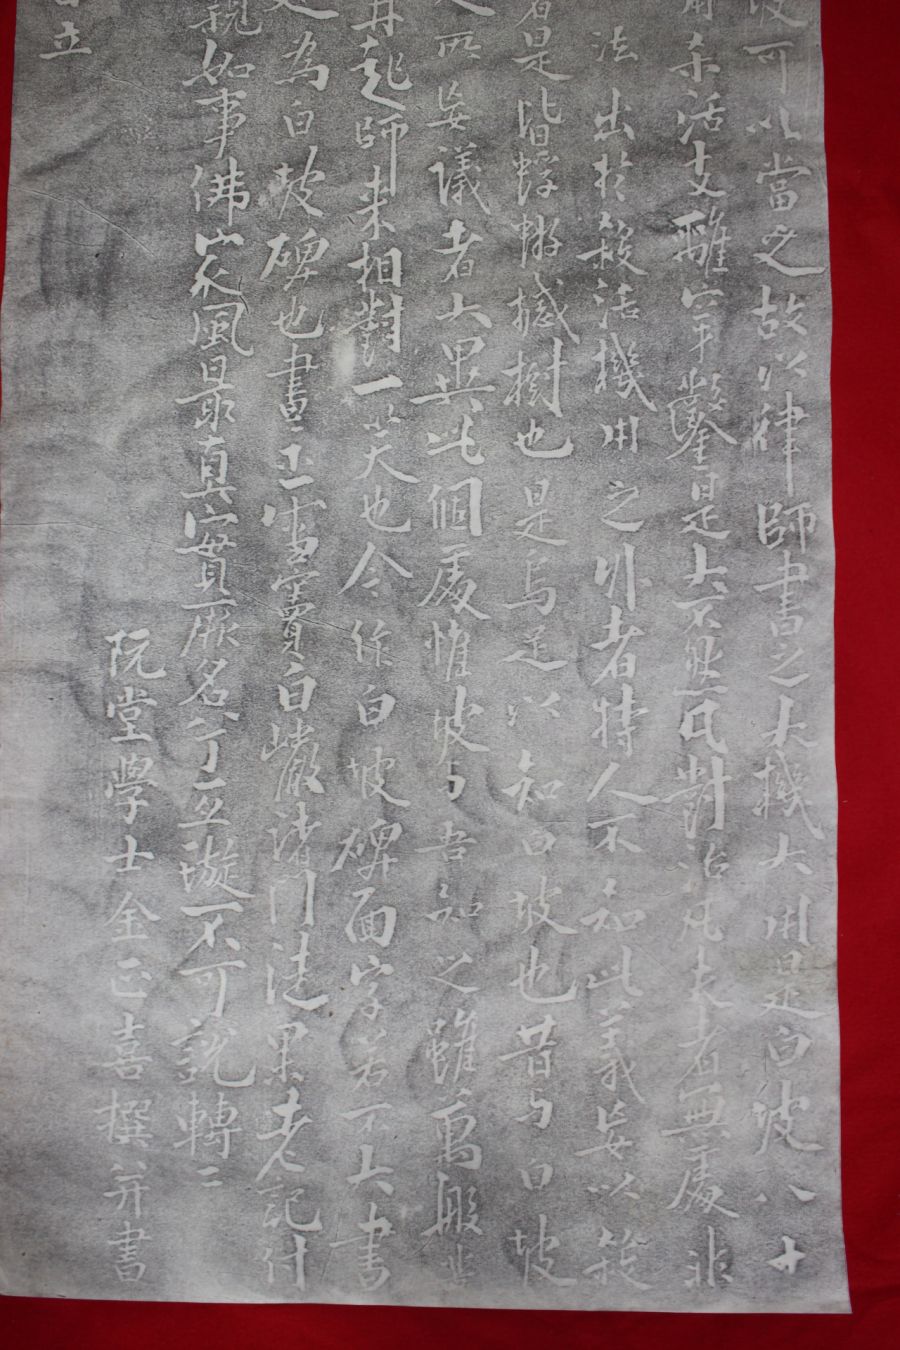 坡可以當之故以律師書之大機大用是白坡八十
用殺活支離穿鑿是大不然凡對治凡夫者無處非
法出於殺活機用之外者特人不知此義妄以殺
者是皆蜉蝣撼樹也是烏足以知白坡也昔与白坡
所妄議者大異此個處惟坡与吾知之雖萬般苦
再起師来相對一笑也今作白坡碑面字若不大書
足為白坡碑也書示雪竇白巖諸門徒果老記付
親如事佛家風最真實厥名兮亘璇不可說轉々
阮堂學士金正喜撰并書
日立